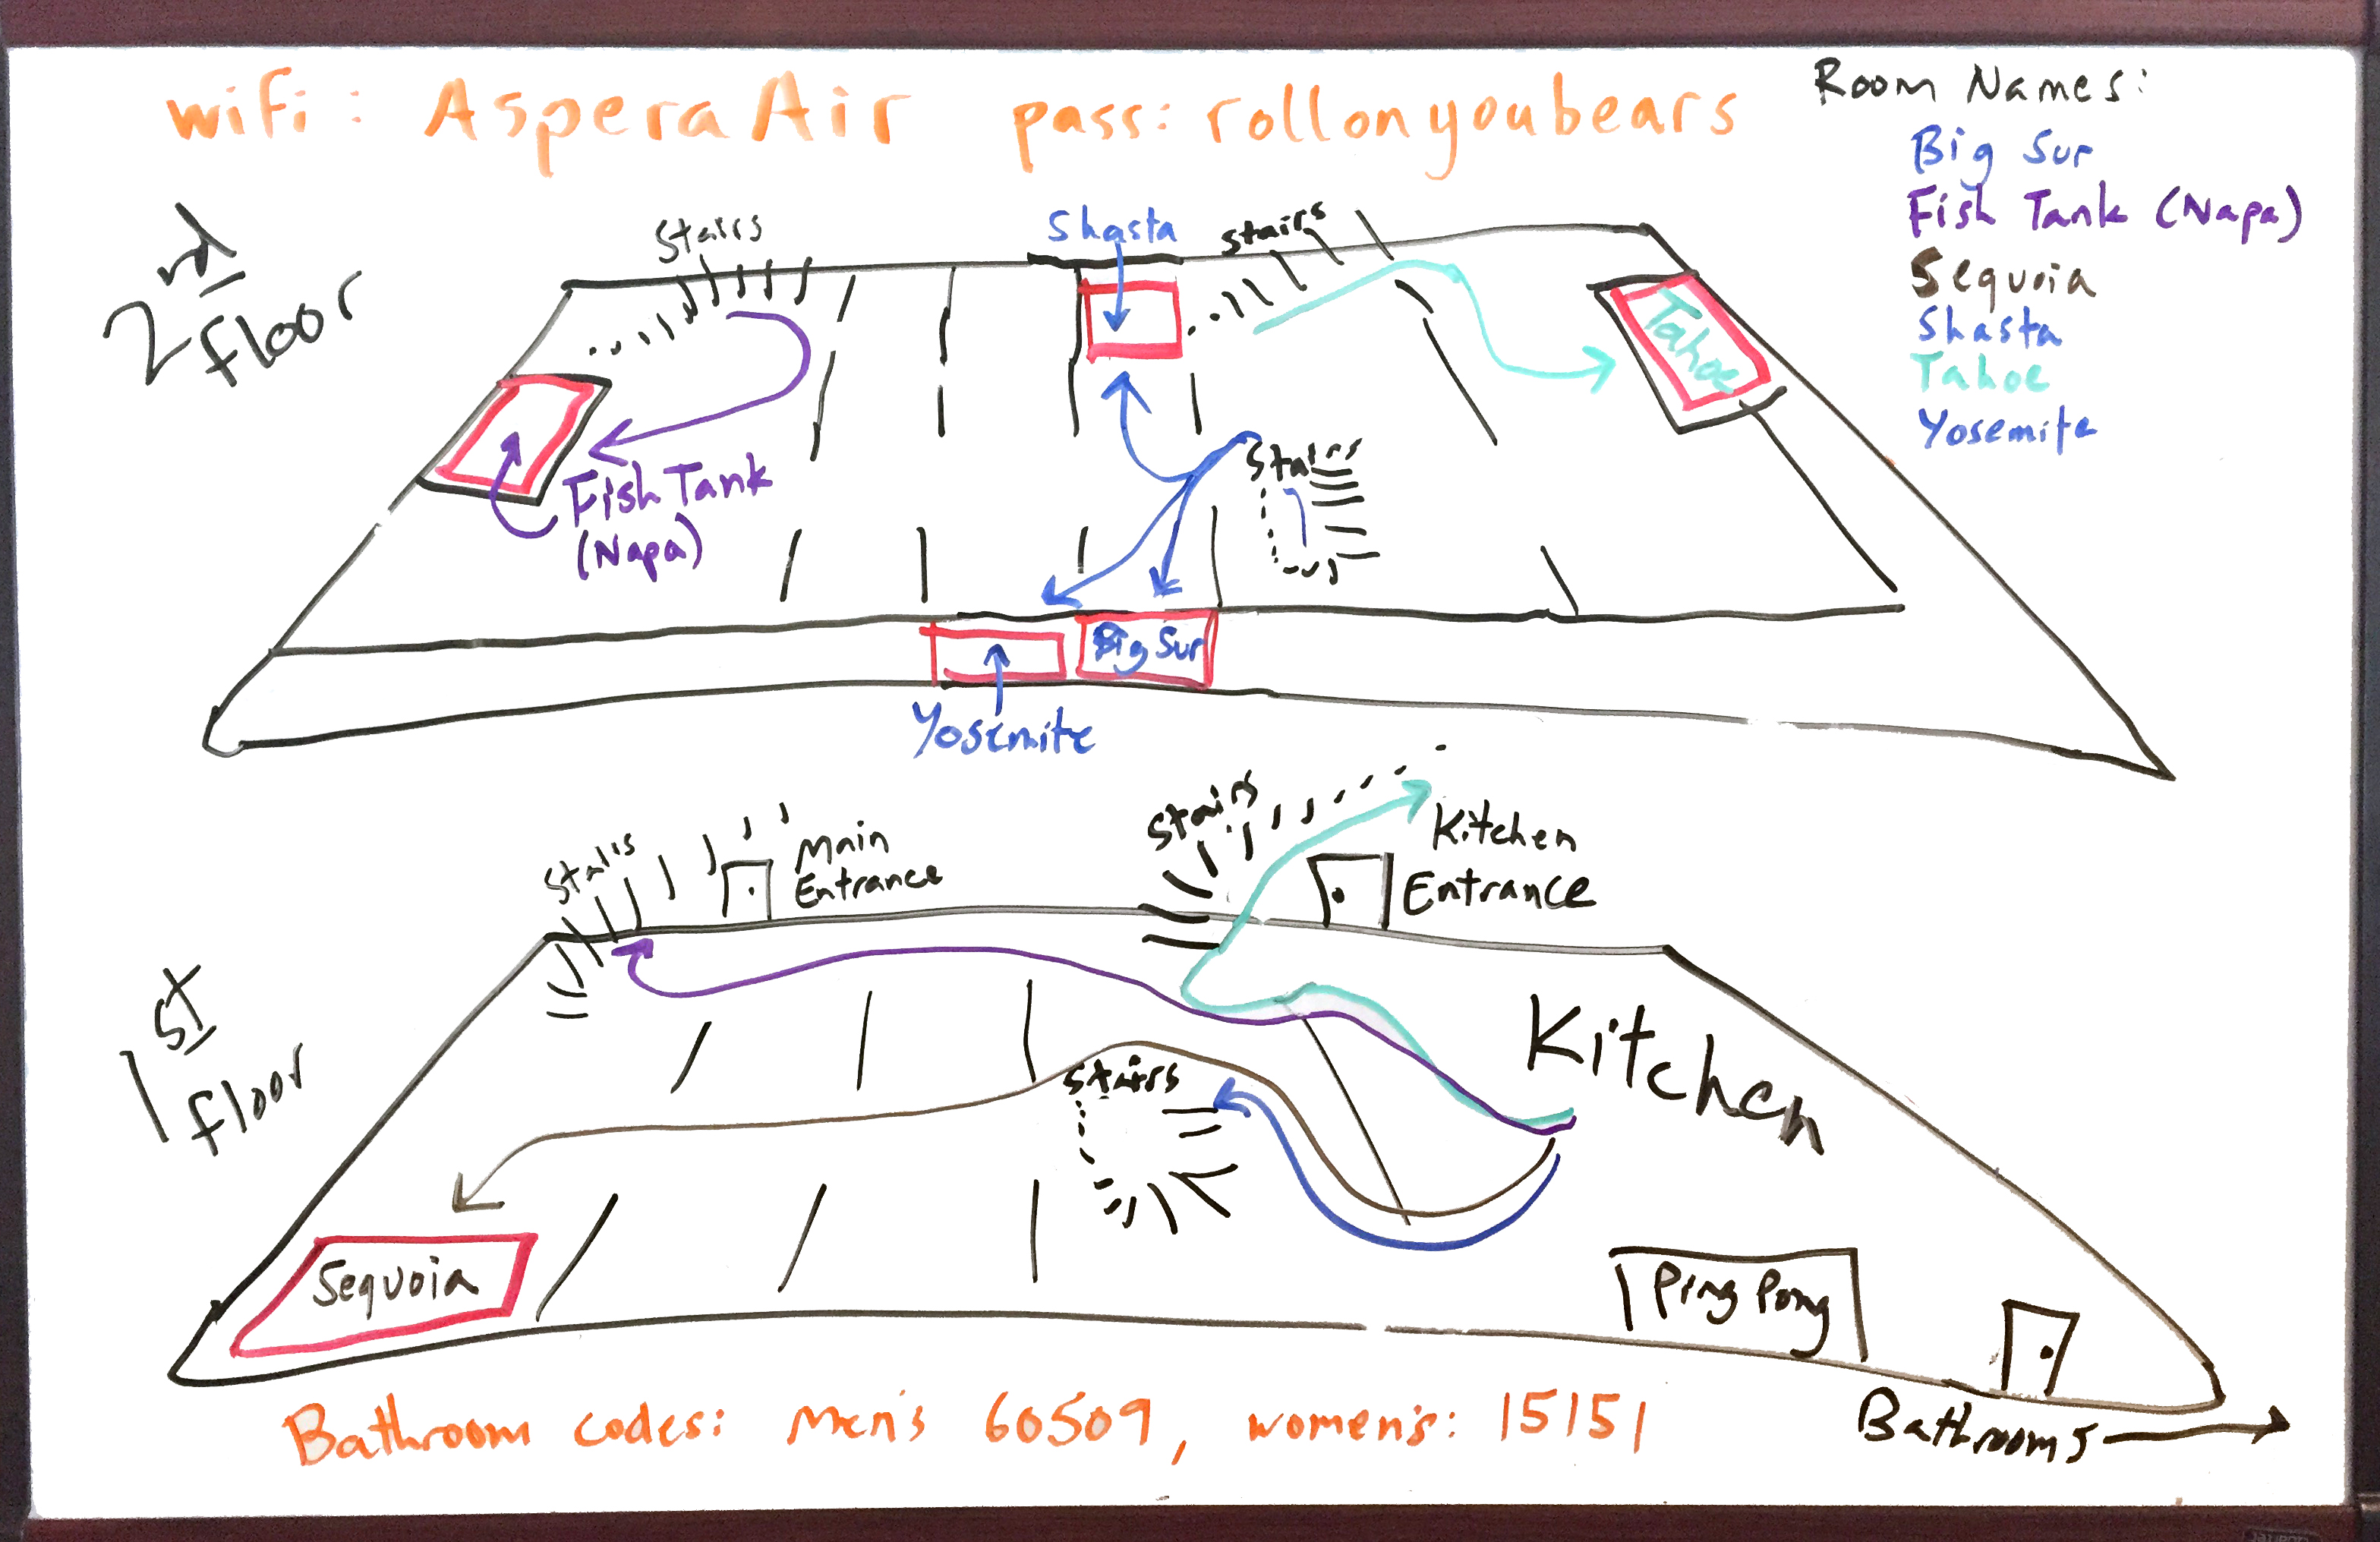 wifi: AsperaAir pass: rollonyoubears
Room Names:
Big Sur
Fish Tank (Napa)
Sequoia
Shasta
Tahoe
Yosemite
2rd
floor
Stairs
Shasta
Stairs
Tahoe
Stairs
Fish Tank
(Napa)
Big Sur
Yosemite
1st
floor
Stairs
Main
Entrance
Stairs
Kitchen
Entrance
Kitchen
Stairs
Sequoia
Ping Pong
Bathrooms
Bathroom codes: Men's 60509, women's: 15151